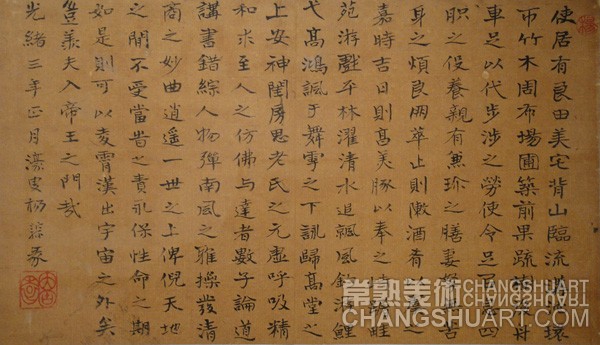 使居有良田美宅背山臨流環
帀竹木周布場圃築前果疏舟
車足以代步涉之勞使令足四
職之役養親有兼珍之膳妻苦
身之煩良朋萃止則漱酒肴之
嘉時吉日則高美豚以奉之畦
苑游戲平林濯清水追飆風釣鯉
弋高鴻諷于舞雩之下詠歸高堂之
上安神閨房思老氏之元虛呼吸精
和求至人之仿佛与達者數子論道
講書錯綜人物彈南風之雅操發清
商之妙曲逍遥一世之上俾倪天地
之間不受當時之責永保性命之期
如是則可以凌霄漢出宇宙之外矣
豈羨夫入帝王之門哉
光緒三年正月濠叟楊沂孫
常熟美術
CHANGSHUART
CHANGSHUART.COM